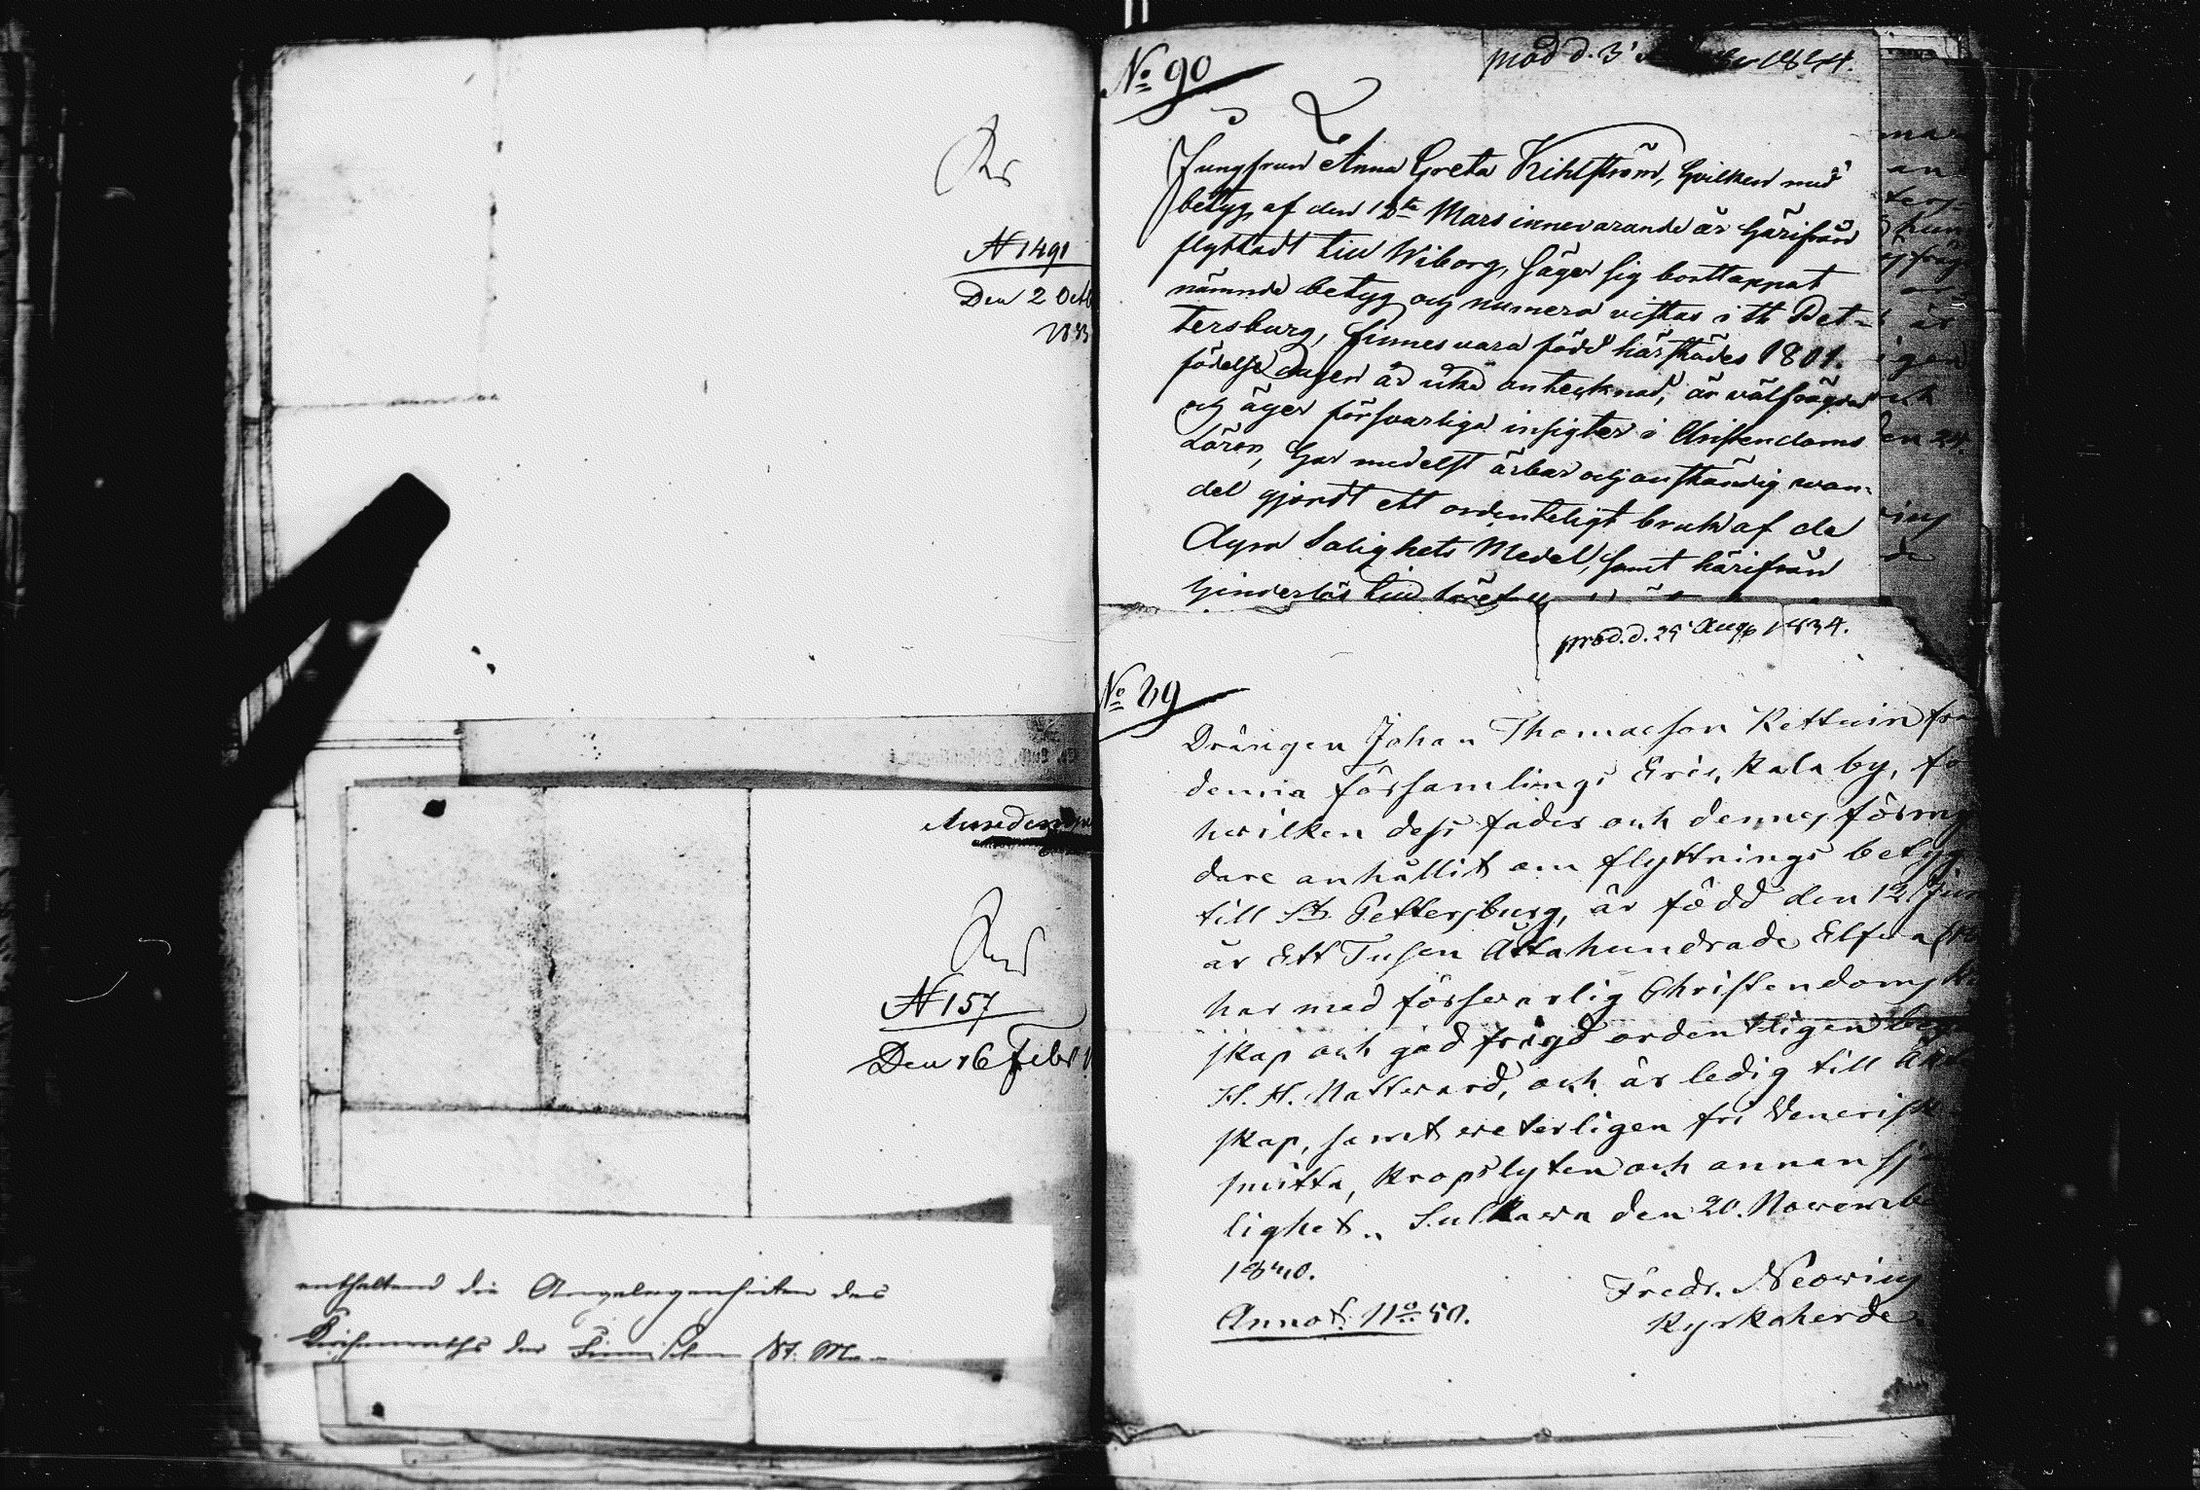 No 1491
Den 2 Octb
1833
No 157
Den 16 Febr
enthaltend die Angelegenheiten des
Kirchenraths der Finnischen St. Ma-
No 90
prod d. 3
Jungfrun Anna Greta Kihlström, hvilken med
betyg af den 18te Mars innevarande år härifrån
flyttadt till Wiborg, säger sig borttappat
nämnde betyg och numera vistas i St Pet-
tersburg, finnes vara född härstädes 1801.
födelse dagen är icke antecknad, är välfrägdad
och äger försvarliga insigter i Christendoms
Läran, har medelst ärbar och anständig wan-
del gjordt ett ordenteligt bruk af de
dyra Salighets Medel, samt härifrån
hinderlös till
prod. d. 25 Aug 1834.
No 89
Drängen Johan Thomasson Kettuin frå
denna församlings Eris, kala by, fö
hwilken dess fader och dennes förmy
dare anhållit om flyttnings betyg
till St. Pettersburg, är född den 12 Jun
år Ett Tusen Åttahundrade Elfwa
har med förswarlig Christendoms k
skap och god frägd ordentligen beg
H. H. Nattward, och är ledig till Äkte
skap, samt weterligen fri Venerisk
smitta, kropslyten och annan sj
lighet. Sulkawa den 20. Novemb
18
Fredr. Neovius
Annot. No 50.
Kyrkoherde.